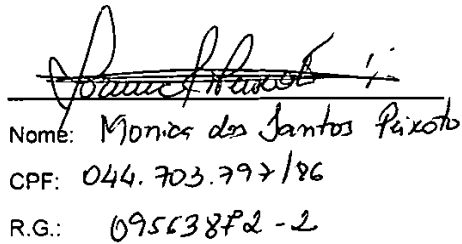 Nome: Monica dos Santos Peixoto
CPF: 044.703.797/86
R.G.: 09563872-2